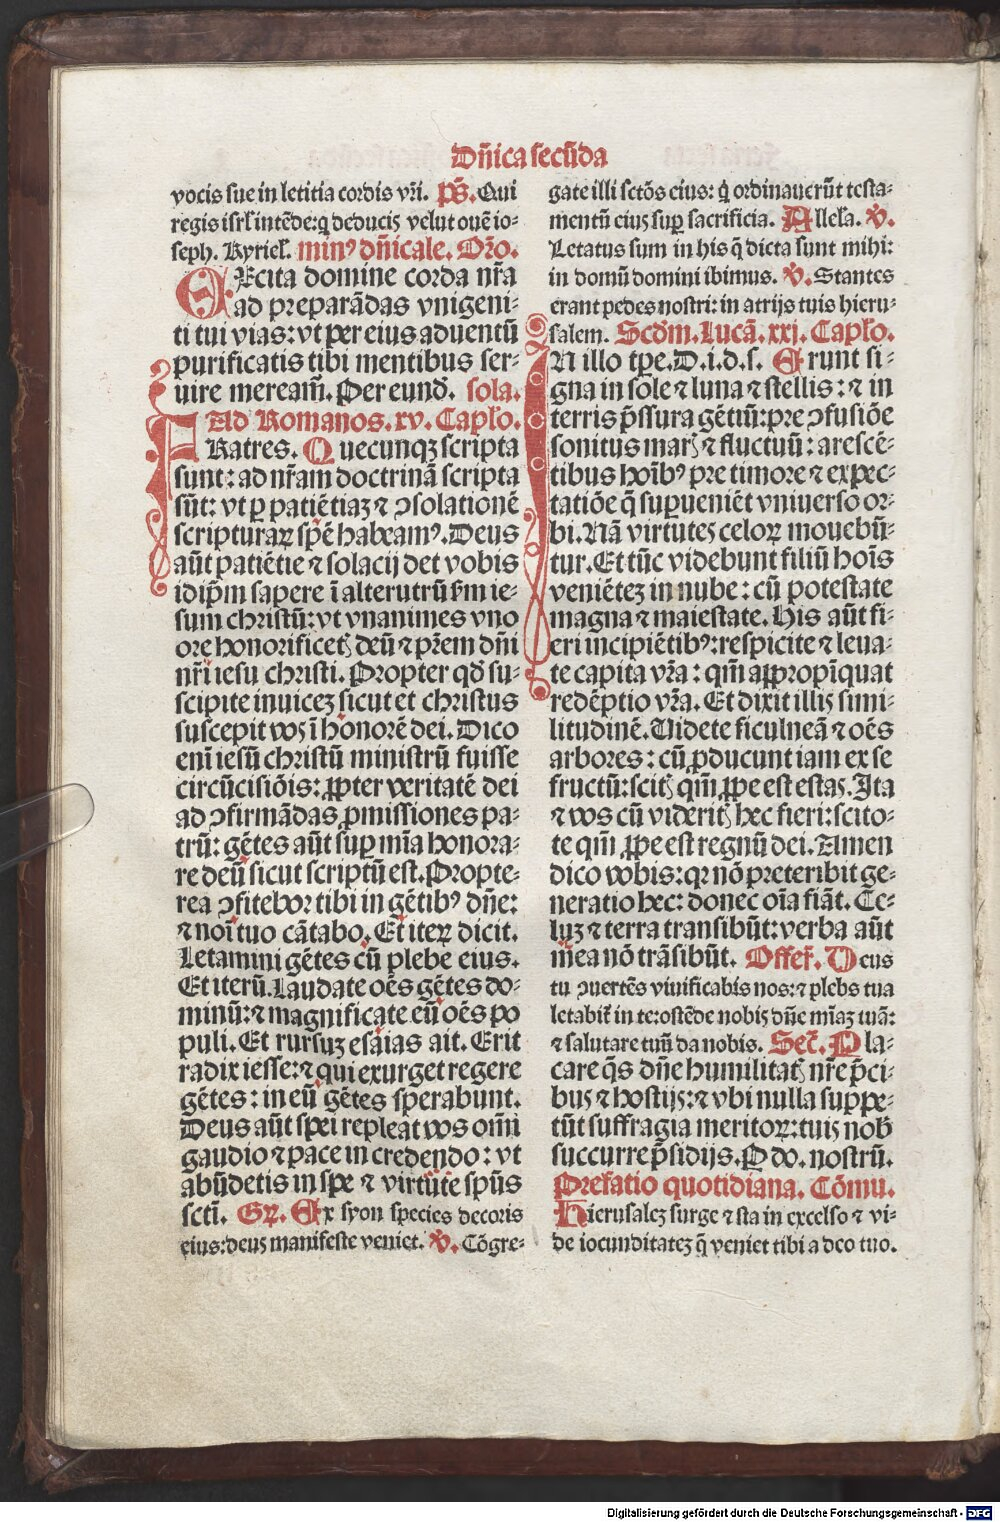 Dn̄ica secūda
vocis sue in letitia cordis vr̄i. p̄s. Qui
regis isrł intēde: q̄ deducis velut ouē io-
seph. Kyrieł. minꝰ dn̄icale. Or̄o.
EXcita domine corda nr̄a
ad preparādas vnigeni-
ti tui vias: vt per eius aduentū
purificatis tibi mentibus ser-
uire meream̄. Per eund̄. sola.
Ad Romanos. xv. Capło.
FRatres. Quecunqꝫ scripta
sunt: ad nr̄am doctrinā scripta
sūt: vt ꝑ patiētiaꝫ ⁊ ꝯsolationē
scripturaꝝ spē habeamꝰ. Deus
aūt patiētie ⁊ solacij det vobis
idip̄m sapere ī alterutrū s̄m ie-
sum christū: vt vnanimes vno
ore honorificetꝭ deū ⁊ pr̄em dn̄i
nr̄i iesu christi. Propter qd̄ su-
scipite inuiceꝫ sicut et christus
suscepit vos ī honorē dei. Dico
enī iesū christū ministrū fuisse
circūcisiōis: ꝓpter veritatē dei
ad ꝯfirmādas ꝓmissiones pa-
trū: gētes aūt suꝑ mīa honora-
re deū sicut scriptū est. Propte-
rea ꝯfitebor tibi in gētibꝰ dn̄e:
⁊ noī tuo cātabo. Et iteꝝ dicit.
Letamini gētes cū plebe eius.
Et iterū. Laudate oēs gētes do-
minū: ⁊ magnificate eū oēs po
puli. Et rursuꝫ esaias ait. Erit
radix iesse: ⁊ qui exurget regere
gētes: in eū gētes sperabunt.
Deus aūt spei repleat vos om̄i
gaudio ⁊ pace in credendo: vt
abūdetis in spe ⁊ virtute spūs
sctī. Gꝝ. Ex syon species decoris
eius: deus manifeste veniet. ꝟ. Cōgre-
gate illi sctōs eius: q̄ ordinauerūt testa-
mentū eius suꝑ sacrificia. Alleła. ꝟ.
Letatus sum in his q̄ dicta sunt mihi:
in domū domini ibimus. ꝟ. Stantes
erant pedes nostri: in atrijs tuis hieru-
salem. Scd̄m. Lucā. xxi. Capło.
IN illo tp̄e. D. i. d. s. Erunt si-
gna in sole ⁊ luna ⁊ stellis: ⁊ in
terris p̄ssura gētiū: pre ꝯfusiōe
sonitus marꝭ ⁊ fluctuū: arescē-
tibus hoībꝰ pre timore ⁊ expec-
tatiōe q̄ suꝑueniēt vniuerso or-
bi. Nā virtutes celoꝝ mouebū-
tur. Et tūc videbunt filiū hoīs
veniēteꝫ in nube: cū potestate
magna ⁊ maiestate. His aūt fi-
eri incipiētibꝰ: respicite ⁊ leua-
te capita vr̄a: qm̄ appropīquat
redēptio vr̄a. Et dixit illis simi-
litudinē. Videte ficulneā ⁊ oēs
arbores: cū ꝓducunt iam ex se
fructū: scitꝭ qm̄ ꝓpe est estas. Ita
⁊ vos cū videritꝭ hec fieri: scito-
te qm̄ ꝓpe est regnū dei. Amen
dico vobis: qꝛ nō preteribit ge-
neratio hec: donec oīa fiāt. Ce-
luꝫ ⁊ terra transibūt: verba aūt
mea nō trāsibūt. Offer̄. Deus
tu ꝯuertēs viuificabis nos: ⁊ plebs tua
letabit̄ in te: ostēde nobis dn̄e mīaꝫ tuā:
⁊ salutare tuū da nobis. Sec̄. Pla-
care q̄s dn̄e humilitatꝭ nr̄e p̄ci-
bus ⁊ hostijs: ⁊ vbi nulla suppe-
tūt suffragia meritoꝝ: tuis nob̄
succurre p̄sidijs. P do. nostrū.
Prefatio quotidiana. Cōmu.
Hierusaleꝫ surge ⁊ sta in excelso ⁊ vi-
de iocunditateꝫ q̄ veniet tibi a deo tuo.
Digitalisierung gefördert durch die Deutsche Forschungsgemeinschaft - DFG